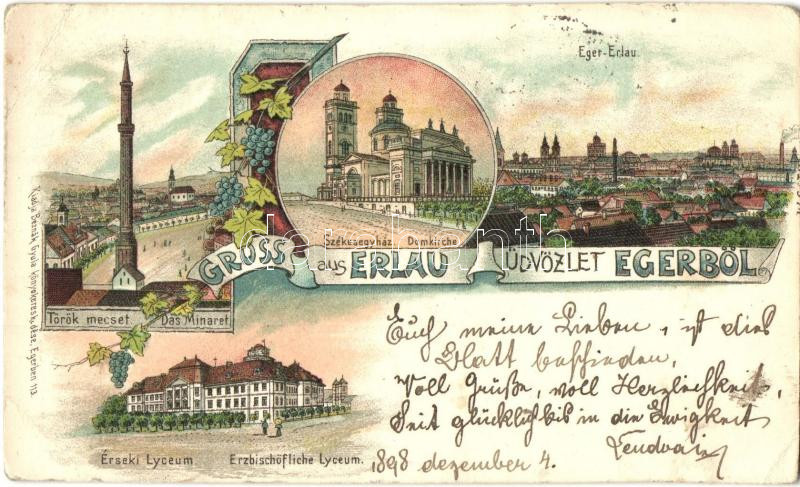 Eger-Erlau.
Székesegyház. Domkirche
GRUSS aus ERLAU ÜDVÖZLET EGERBŐL
Török mecset. Das Minaret
Kiadja Beznák Gyula könyvkereskedése, Egerben 113.
Érseki Lyceum. Erzbischöfliche Lyceum.
Euch meine Lieben, ist dies
Blatt beschieden,
Voll Grüße, voll Herzlichkeit,
Seit glücklich bis in die Ewigkeit
Lendvai
1898 dezember 4.